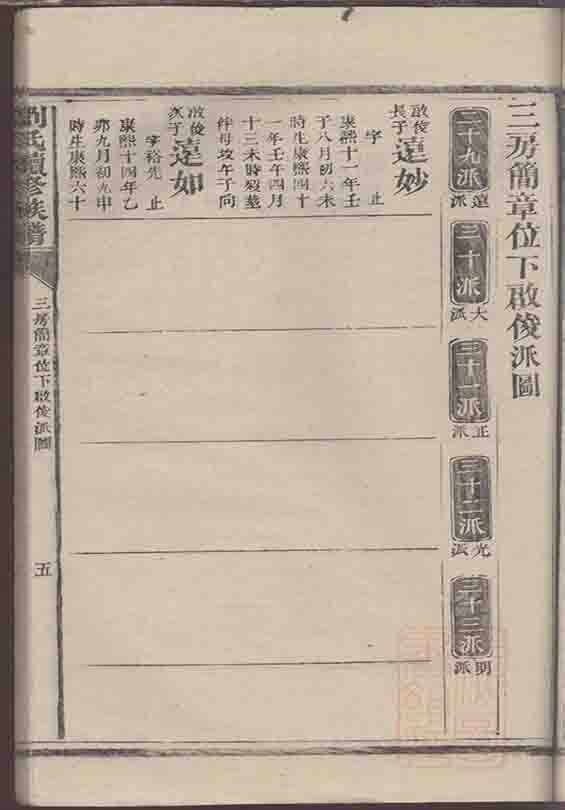 三房簡章位下啟俊派圖
二十九派
遠派
三十派
大派
三十一派
正派
三十二派
光派
三十三派
明派
啟俊長子遠妙
字 止
康熙十一年壬
子八月初六未
時生康熙四十
一年壬午四月
十三未時歿葬
伴母坟午子向
啟俊次子遠如
字裕先 止
康熙十四年乙
卯九月初九申
時生康熙六十
劉氏續修族譜
三房簡章位下啟俊派圖
五